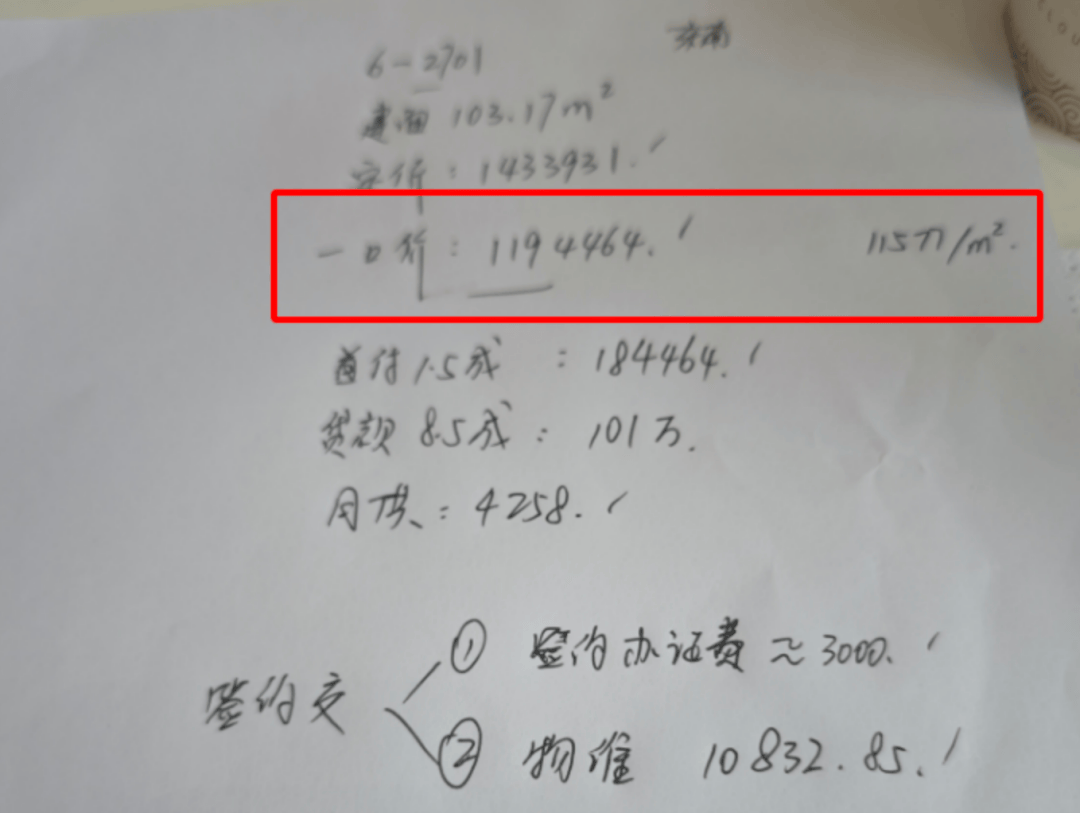 6-2701
建面 103.17m²
定价: 1433931.
一口价: 1194464. 11577/m².
首付1.5成: 184464.
贷款8.5成: 101万.
月供: 4258.
签约交
① 签约办证费≈3000.
② 物维 10832.85.